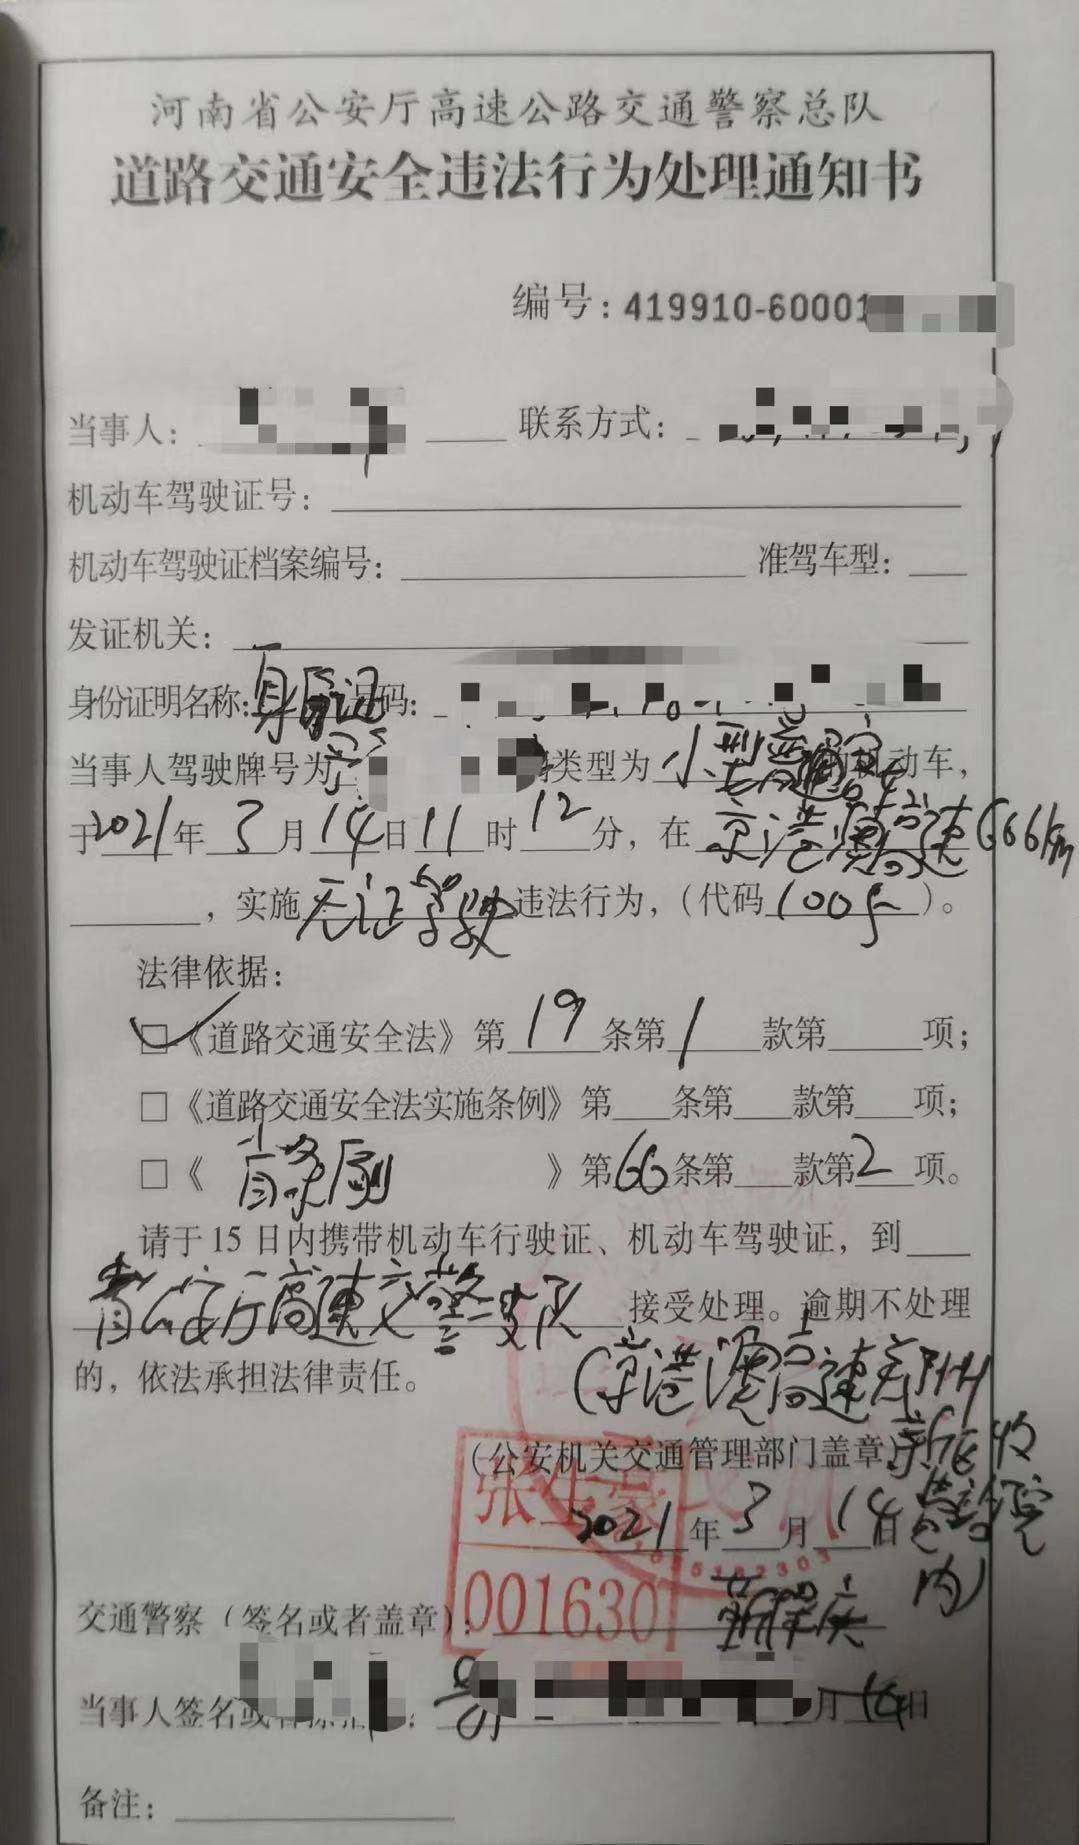 河南省公安厅高速公路交通警察总队
道路交通安全违法行为处理通知书
编号：419910-60001
当事人： 联系方式：
机动车驾驶证号：
机动车驾驶证档案编号： 准驾车型：
发证机关：
身份证明名称：身份证 号码：
当事人驾驶牌号为 类型为小型普通客 机动车，
于2021年3月14日11时12分，在京港澳高速666km
，实施无证驾驶违法行为，（代码1005）。
法律依据：
☑《道路交通安全法》第19条第1款第 项；
□《道路交通安全法实施条例》第 条第 款第 项；
□《省条例》第66条第 款第2项。
请于15日内携带机动车行驶证、机动车驾驶证，到
省公安厅高速交警 支队 接受处理。逾期不处理
的，依法承担法律责任。
（京港澳高速郑州
（公安机关交通管理部门盖章） 收
2021年3月14日 费站院
内）
001630
交通警察（签名或者盖章）：
当事人签名或 ： 月14日
备注：